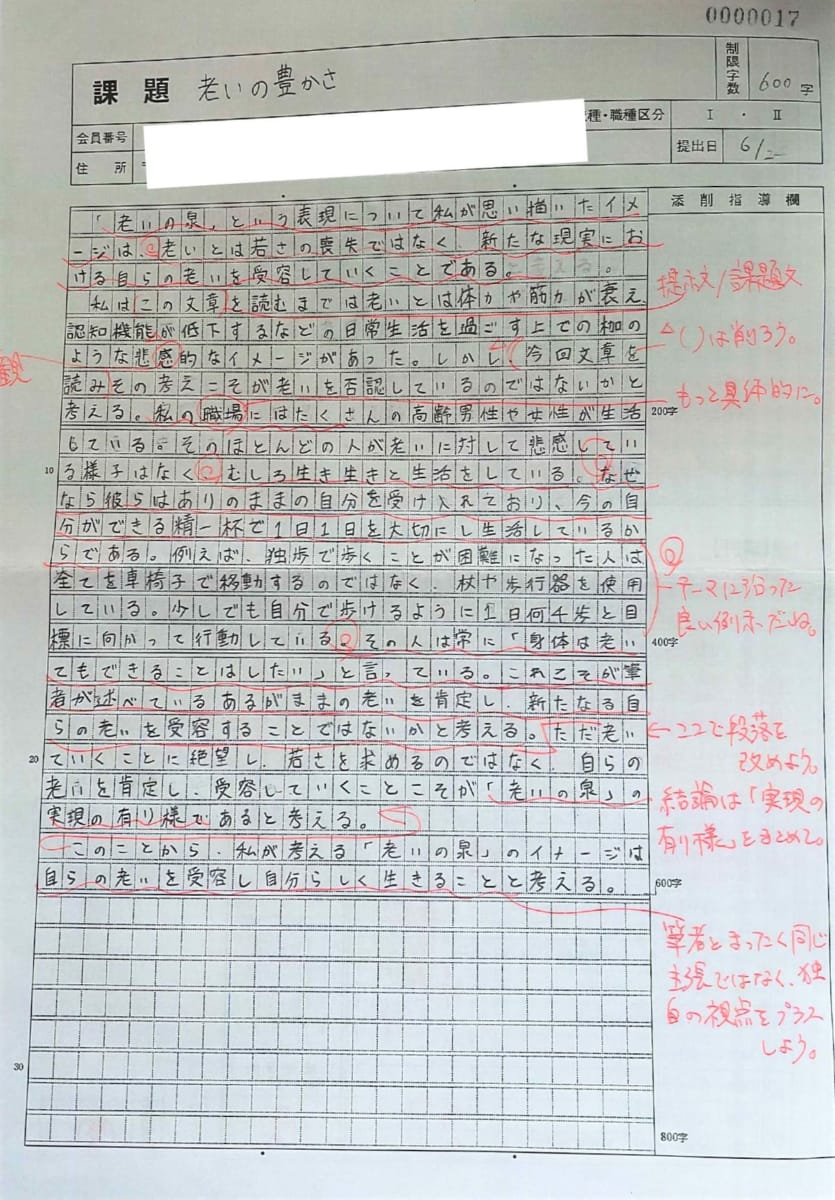 0000017
課題 老いの豊かさ
制限字数 600字
会員番号
種・職種区分 Ⅰ・Ⅱ
住所
提出日 6/
添削指導欄
「老いの泉」という表現について私が思い描いたイメ
ージは、老いとは若さの喪失ではなく、新たな現実にお
ける自らの老いを受容していくことである。
私はこの文章を読むまでは老いとは体力や筋力が衰え、
認知機能が低下するなどの日常生活を過ごす上での枷の
ような悲感的なイメージがあった。しかし、今回文章を
読みその考えこそが老いを否認しているのではないかと
考える。私の職場にはたくさんの高齢男性や女性が生活
している。そのほとんどの人が老いに対して悲感してい
る様子はなくむしろ生き生きと生活をしている。なぜ
なら彼らはありのままの自分を受け入れており、今の自
分ができる精一杯で1日1日を大切にし生活しているか
らである。例えば、独歩で歩くことが困難になった人は
全てを車椅子で移動するのではなく、杖や歩行器を使用
している。少しでも自分で歩けるように1日何千歩と目
標に向かって行動している。その人は常に「身体は老い
てもできることはしたい」と言っている。これこそが筆
者が述べているあるがままの老いを肯定し、新たなる自
らの老いを受容することではないかと考える。ただ老い
ていくことに絶望し、若さを求めるのではなく、自らの
老いを肯定し、受容していくことこそが「老いの泉」の
実現の有り様であると考える。
このことから、私が考える「老いの泉」のイメージは
自らの老いを受容し自分らしく生きることと考える。
観
提示文/課題文
( )は削ろう。
もっと具体的に。
200字
10
テーマに沿った
良い例示だね。
400字
ここで段落を
改めよう。
20
結論は「実現の
有り様」をまとめて。
600字
筆者とまったく同じ
主張ではなく、独
自の視点をプラス
しよう。
30
800字